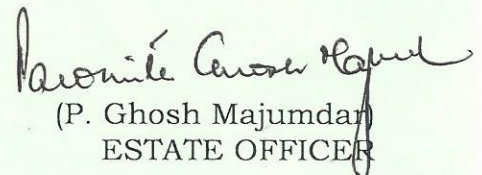 Paromita Ghosh Majumdar
(P. Ghosh Majumdar)
ESTATE OFFICER